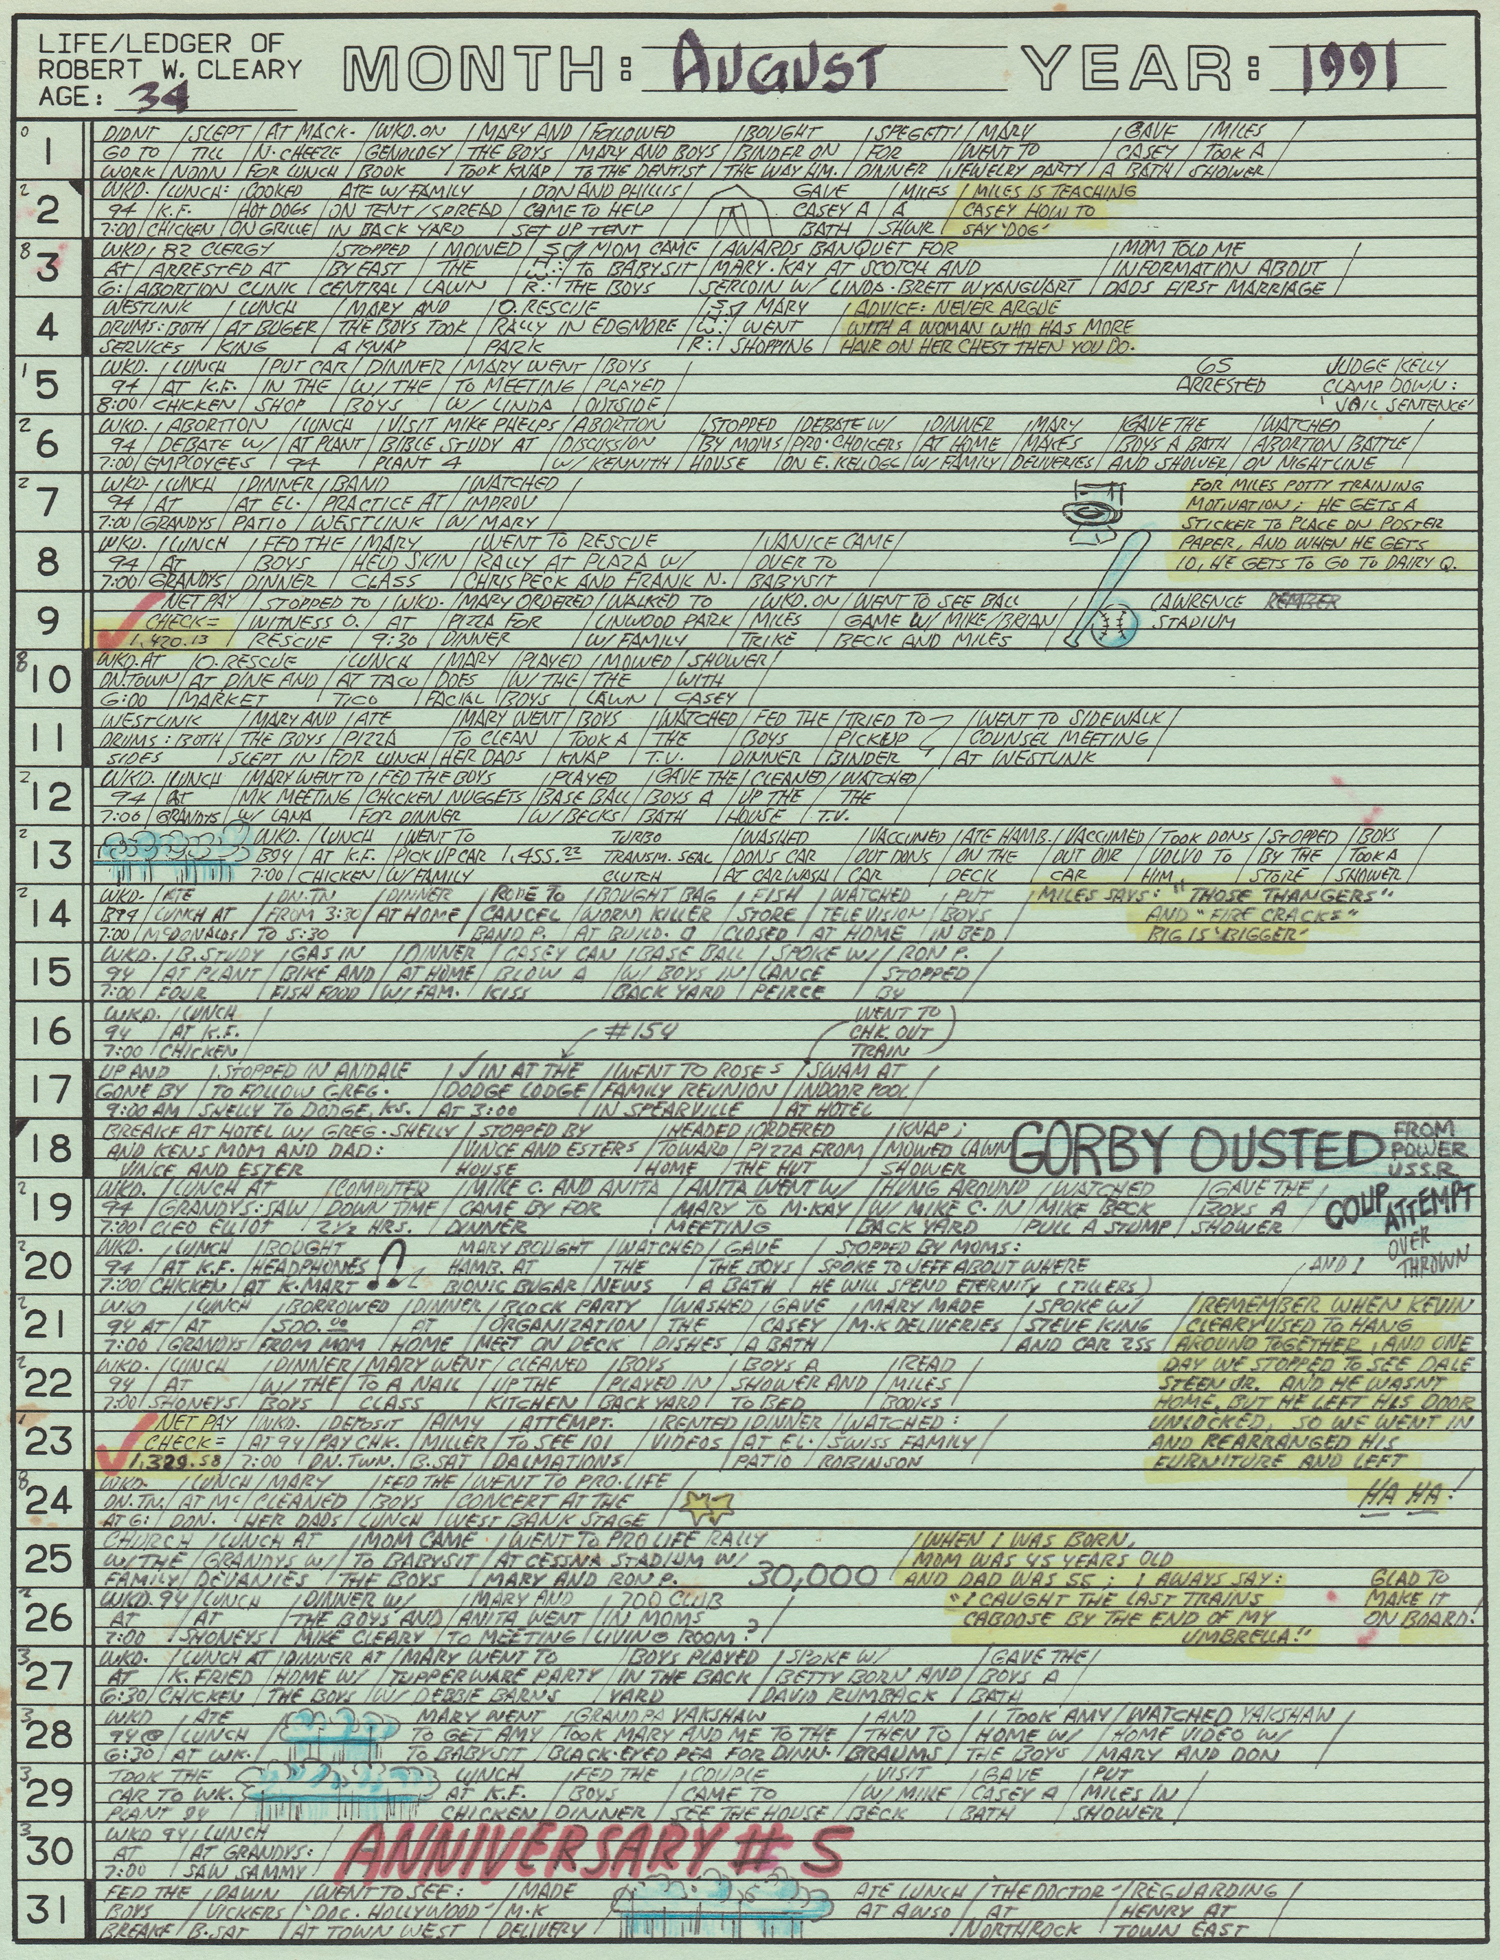 LIFE/LEDGER OF
ROBERT W. CLEARY
AGE: 34
MONTH: AUGUST YEAR: 1991
0
1
DIDNT / SLEPT / AT MACK- / WKD. ON / MARY AND / FOLLOWED / BOUGHT / SPEGETTI / MARY / GAVE / MILES /
GO TO / TILL / N-CHEEZE / GENOLOGY / THE BOYS / MARY AND BOYS / BINDER ON / FOR / WENT TO / CASEY / TOOK A /
WORK / NOON / FOR LUNCH / BOOK / TOOK KNAP / TO THE DENTIST / THE WAY HM. / DINNER / JEWELRY PARTY / A BATH / SHOWER /
2
2
WKD. / LUNCH: / COOKED / ATE W/ FAMILY / DON AND PHILLIS / GAVE / MILES / MILES IS TEACHING
94 / K.F. / HOT DOGS / ON TENT/SPREAD / CAME TO HELP / CASEY A / A / CASEY HOW TO
7:00 / CHICKEN / ON GRILLE / IN BACK YARD / SET UP TENT / BATH / SHWR / SAY "DOG"
8
3
WKD / 82 CLERGY / STOPPED / MOWED / MOM CAME / AWARDS BANQUET FOR / MOM TOLD ME
AT / ARRESTED AT / BY EAST / THE / TO BABYSIT / MARY-KAY AT SCOTCH AND / INFORMATION ABOUT
6: / ABORTION CLINIC / CENTRAL / LAWN / R.: / THE BOYS / SERLOIN W/ LINDA-BRETT WYANGUART / DADS FIRST MARRIAGE /
4
WESTLINK / LUNCH / MARY AND / O. RESCUE / MARY / ADVICE: NEVER ARGUE
DRUMS: BOTH / AT BUGER / THE BOYS TOOK / RALLY IN EDGMORE / WENT / WITH A WOMAN WHO HAS MORE
SERVICES / KING / A KNAP / PARK / R.: / SHOPPING / HAIR ON HER CHEST THEN YOU DO.
1
5
WKD. / LUNCH / PUT CAR / DINNER / MARY WENT / BOYS / 65 JUDGE KELLY
94 / AT K.F. / IN THE / W/ THE / TO MEETING / PLAYED / ARRESTED CLAMP DOWN:
8:00 / CHICKEN / SHOP / BOYS / W/ LINDA / OUTSIDE / "JAIL SENTENCE"
2
6
WKD. / ABORTION / LUNCH / VISIT MIKE PHELPS / ABORTION / STOPPED / DEBATE W/ / DINNER / MARY / GAVE THE / WATCHED /
94 / DEBATE W/ / AT PLANT / BIBLE STUDY AT / DISCUSSION / BY MOMS / PRO-CHOICERS / AT HOME / MAKES / BOYS A BATH / ABORTION BATTLE /
7:00 / EMPLOYEES / 94 / PLANT 4 / W/ KENNITH / HOUSE / ON E. KELLOGG / W/ FAMILY / DELIVERIES / AND SHOWER / ON NIGHTLINE /
2
7
WKD- / LUNCH / DINNER / BAND / WATCHED / FOR MILES POTTY TRAINING
94 / AT / AT EL- / PRACTICE AT / IMPROV / MOTIVATION: HE GETS A
7:00 / GRANDYS / PATIO / WESTLINK / W/ MARY / STICKER TO PLACE ON POSTER
2
8
WKD. / LUNCH / FED THE / MARY / WENT TO RESCUE / JANICE CAME / PAPER, AND WHEN HE GETS
94 / AT / BOYS / HELD SKIN / RALLY AT PLAZA W/ / OVER TO / 10, HE GETS TO GO TO DAIRY Q.
7:00 / GRANDYS / DINNER / CLASS / CHRIS PECK AND FRANK N. / BABYSIT /
9
NET PAY / STOPPED TO / WKD- / MARY ORDERED / WALKED TO / WKD. ON / WENT TO SEE BALL / LAWRENCE
CHECK= / WITNESS O. / AT / PIZZA FOR / LINWOOD PARK / MILES / GAME W/ MIKE/BRIAN / STADIUM
1,420.13 / RESCUE / 9:30 / DINNER / W/ FAMILY / TRIKE / BECK AND MILES /
8
10
WKD. AT / O. RESCUE / LUNCH / MARY / PLAYED / MOWED / SHOWER /
DN.TOWN / AT DINE AND / AT TACO / DOES / W/ THE / THE / WITH /
6:00 / MARKET / TICO / FACIAL / BOYS / LAWN / CASEY /
11
WESTLINK / MARY AND / ATE / MARY WENT / BOYS / WATCHED / FED THE / TRIED TO / WENT TO SIDEWALK /
DRUMS: BOTH / THE BOYS / PIZZA / TO CLEAN / TOOK A / THE / BOYS / PICKUP / COUNSEL MEETING /
SIDES / SLEPT IN / FOR LUNCH / HER DADS / KNAP / T.V. / DINNER / BINDER / AT WESTLINK /
2
12
WKD. / LUNCH / MARY WENT TO / FED THE BOYS / PLAYED / GAVE THE / CLEANED / WATCHED /
94 / AT / MK MEETING / CHICKEN NUGGETS / BASE BALL / BOYS A / UP THE / THE /
7:00 / GRANDYS / W/ LANA / FOR DINNER / W/ BECKS / BATH / HOUSE / T.V. /
2
13
WKD. / LUNCH / WENT TO / TURBO / WASHED / VACCUMED / ATE HAMB. / VACCUMED / TOOK DONS / STOPPED / BOYS /
B94 / AT K.F. / PICK UP CAR 1,455.22 TRANSM. SEAL / DONS CAR / OUT DONS / ON THE / OUT OUR / VOLVO TO / BY THE / TOOK A /
7:00 / CHICKEN / W/ FAMILY / CLUTCH / AT CARWASH / CAR / DECK / CAR / HIM / STORE / SHOWER /
2
14
WKD- / ATE / DN.TN / DINNER / RODE TO / BOUGHT BAG / FISH / WATCHED / PUT / MILES SAYS: "THOSE THANGERS"
B94 / LUNCH AT / FROM 3:30 / AT HOME / CANCEL / WORM KILLER / STORE / TELEVISION / BOYS / AND "FIRE CRACKS"
7:00 / McDONALDS / TO 5:30 / BAND P. / AT BUILD. / CLOSED / AT HOME / IN BED / BIG IS "BIGGER"
15
WKD. / B.STUDY / GAS IN / DINNER / CASEY CAN / BASE BALL / SPOKE W/ / RON P. /
94 / AT PLANT / BIKE AND / AT HOME / BLOW A / W/ BOYS IN / LANCE / STOPPED /
7:00 / FOUR / FISH FOOD / W/ FAM. / KISS / BACK YARD / PEIRCE / BY /
16
WKD. / LUNCH / WENT TO
94 / AT K.F. / #154 CHK. OUT
7:00 / CHICKEN / TRAIN
17
UP AND / STOPPED IN ANDALE / ✓ IN AT THE / WENT TO ROSES / SWAM AT /
GONE BY / TO FOLLOW GREG- / DODGE LODGE / FAMILY REUNION / INDOOR POOL /
9:00 AM / SHELLY TO DODGE, KS. / AT 3:00 / IN SPEARVILLE / AT HOTEL /
18
BREAKE AT HOTEL W/ GREG-SHELLY / STOPPED BY / HEADED / ORDERED / KNAP; GORBY OUSTED FROM
AND KENS MOM AND DAD: / VINCE AND ESTERS / TOWARD / PIZZA FROM / MOWED LAWN POWER
VINCE AND ESTER / HOUSE / HOME / THE HUT / SHOWER U.S.S.R.
2
19
WKD. / LUNCH AT / COMPUTER / MIKE C. AND ANITA / ANITA WENT W/ / HUNG AROUND / WATCHED / GAVE THE / COUP ATTEMPT
94 / GRANDYS: SAW / DOWN TIME / CAME BY FOR / MARY TO M-KAY / W/ MIKE C. IN / MIKE BECK / BOYS A /
7:00 / CLEO ELLIOT / 2½ HRS. / DINNER / MEETING / BACK YARD / PULL A STUMP / SHOWER / OVER THROWN
2
20
WKD. / LUNCH / BOUGHT / MARY BOUGHT / WATCHED / GAVE / STOPPED BY MOMS:
94 / AT K.F. / HEADPHONES / HAMB. AT / THE / THE BOYS / SPOKE TO JEFF ABOUT WHERE / AND I
7:00 / CHICKEN / AT K-MART / BIONIC BUGAR / NEWS / A BATH / HE WILL SPEND ETERNITY (TILLERS)
2
21
WKD / LUNCH / BORROWED / DINNER / BLOCK PARTY / WASHED / GAVE / MARY MADE / SPOKE W/ / REMEMBER WHEN KEVIN
94 AT / AT / 500.00 / AT / ORGANIZATION / THE / CASEY / M-K DELIVERIES / STEVE KING / CLEARY USED TO HANG
7:00 / GRANDYS / FROM MOM / HOME / MEET ON DECK / DISHES / A BATH / AND CAR 255 / AROUND TOGETHER, AND ONE
2
22
WKD. / LUNCH / DINNER / MARY WENT / CLEANED / BOYS / BOYS A / READ / DAY WE STOPPED TO SEE DALE
94 / AT / W/ THE / TO A NAIL / UP THE / PLAYED IN / SHOWER AND / MILES / STEEN JR. AND HE WASNT
7:00 / SHONEYS / BOYS / CLASS / KITCHEN / BACK YARD / TO BED / BOOKS / HOME, BUT HE LEFT HIS DOOR
1
23
NET PAY / WKD. / DEPOSIT / AIMY / ATTEMPT. / RENTED / DINNER / WATCHED: / UNLOCKED, SO WE WENT IN
CHECK= / AT 94 / PAY CHK. / MILLER / TO SEE 101 / VIDEOS / AT EL- / SWISS FAMILY / AND REARRANGED HIS
1,329.58 / 7:00 / DN.TWN. / B.SAT / DALMATIONS / PATIO / ROBINSON / FURNITURE AND LEFT
8
24
WKD- / LUNCH / MARY / FED THE / WENT TO PRO-LIFE / HA HA!
DN.TN. / AT Mc / CLEANED / BOYS / CONCERT AT THE /
AT 6: / DON. / HER DADS / LUNCH / WEST BANK STAGE /
25
CHURCH / LUNCH AT / MOM CAME / WENT TO PROLIFE RALLY / WHEN I WAS BORN,
W/ THE / GRANDYS W/ / TO BABYSIT / AT CESSNA STADIUM W/ / MOM WAS 45 YEARS OLD
FAMILY / DEVANIES / THE BOYS / MARY AND RON P. 30,000 / AND DAD WAS 55: I AWAYS SAY: GLAD TO
2
26
WKD. 94 / LUNCH / DINNER W/ / MARY AND / 700 CLUB / "I CAUGHT THE LAST TRAINS MAKE IT
AT / AT / THE BOYS AND / ANITA WENT / IN MOMS / CABOOSE BY THE END OF MY ON BOARD!
7:00 / SHONEYS / MIKE CLEARY / TO MEETING / LIVING ROOM? / UMBRELLA!"
3
27
WKD. / LUNCH AT / DINNER AT / MARY WENT TO / BOYS PLAYED / SPOKE W/ / GAVE THE /
AT / K. FRIED / HOME W/ / TUPPERWARE PARTY / IN THE BACK / BETTY BORN AND / BOYS A /
6:30 / CHICKEN / THE BOYS / W/ DEBBIE BARNS / YARD / DAVID RUMBACK / BATH /
3
28
WKD / ATE / MARY WENT / GRANDPA YAKSHAW / AND / TOOK AMY / WATCHED YAKSHAW /
94@ / LUNCH / TO GET AMY / TOOK MARY AND ME TO THE / THEN TO / HOME W/ / HOME VIDEO W/ /
6:30 / AT WK. / TO BABYSIT / BLACK-EYED PEA FOR DINN- / BRAUMS / THE BOYS / MARY AND DON /
3
29
TOOK THE / LUNCH / FED THE / COUPLE / VISIT / GAVE / PUT /
CAR TO WK. / AT K.F. / BOYS / CAME TO / W/ MIKE / CASEY A / MILES IN /
PLANT 94 / CHICKEN / DINNER / SEE THE HOUSE / BECK / BATH / SHOWER /
3
30
WKD 94 / LUNCH / ANNIVERSARY # 5
AT / AT GRANDYS: /
7:00 / SAW SAMMY /
31
FED THE / DAWN / WENT TO SEE: / MADE / ATE LUNCH / "THE DOCTOR" / REGUARDING /
BOYS / VICKERS / "DOC. HOLLYWOOD" / M-K / AT AWSO / AT / HENRY AT /
BREAKE / B-SAT / AT TOWN WEST / DELIVERY / NORTHROCK / TOWN EAST /